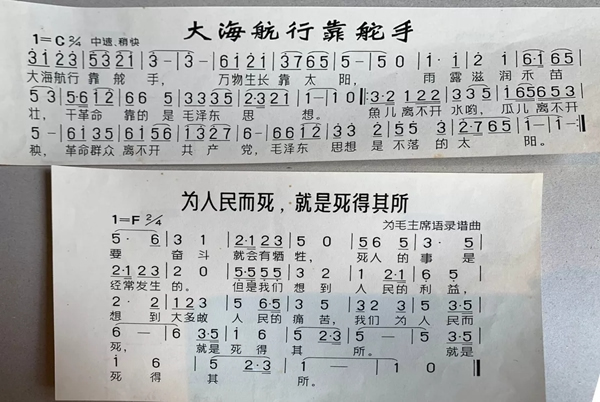 大海航行靠舵手
1=C 2/4 中速、稍快
3123|5321|3-|3-|6121|3765|5-|50|1·1|2161|6165|
大海航行靠舵手，万物生长靠太阳，雨露滋润禾苗
53|5·612|665|3335|2·321|1-|10‖:3·2122|3·333|165653|
壮，干革命靠的是毛泽东思想。鱼儿离不开水哟，瓜儿离不开
5-|6135|6156|1327|6-|6612|335|53|2·765|1-|1-:‖
秧，革命群众离不开共产党，毛泽东思想是不落的太阳。
为人民而死，就是死得其所
1=F 2/4
为毛主席语录谱曲
5·6|31|2·123|50|565|3·5|
要奋斗就会有牺牲，死人的事是
2·123|20|5·555|32|12·1|65|
经常发生的。但是我们想到人民的利益，
2·2|123|56·5|35|323|53·5|
想到大多数人民的痛苦，我们为人民而
6-|63·5|16|52·3|5-|53·5|
死，就是死得其所。就是
16|52·3|1-|10‖
死得其所。